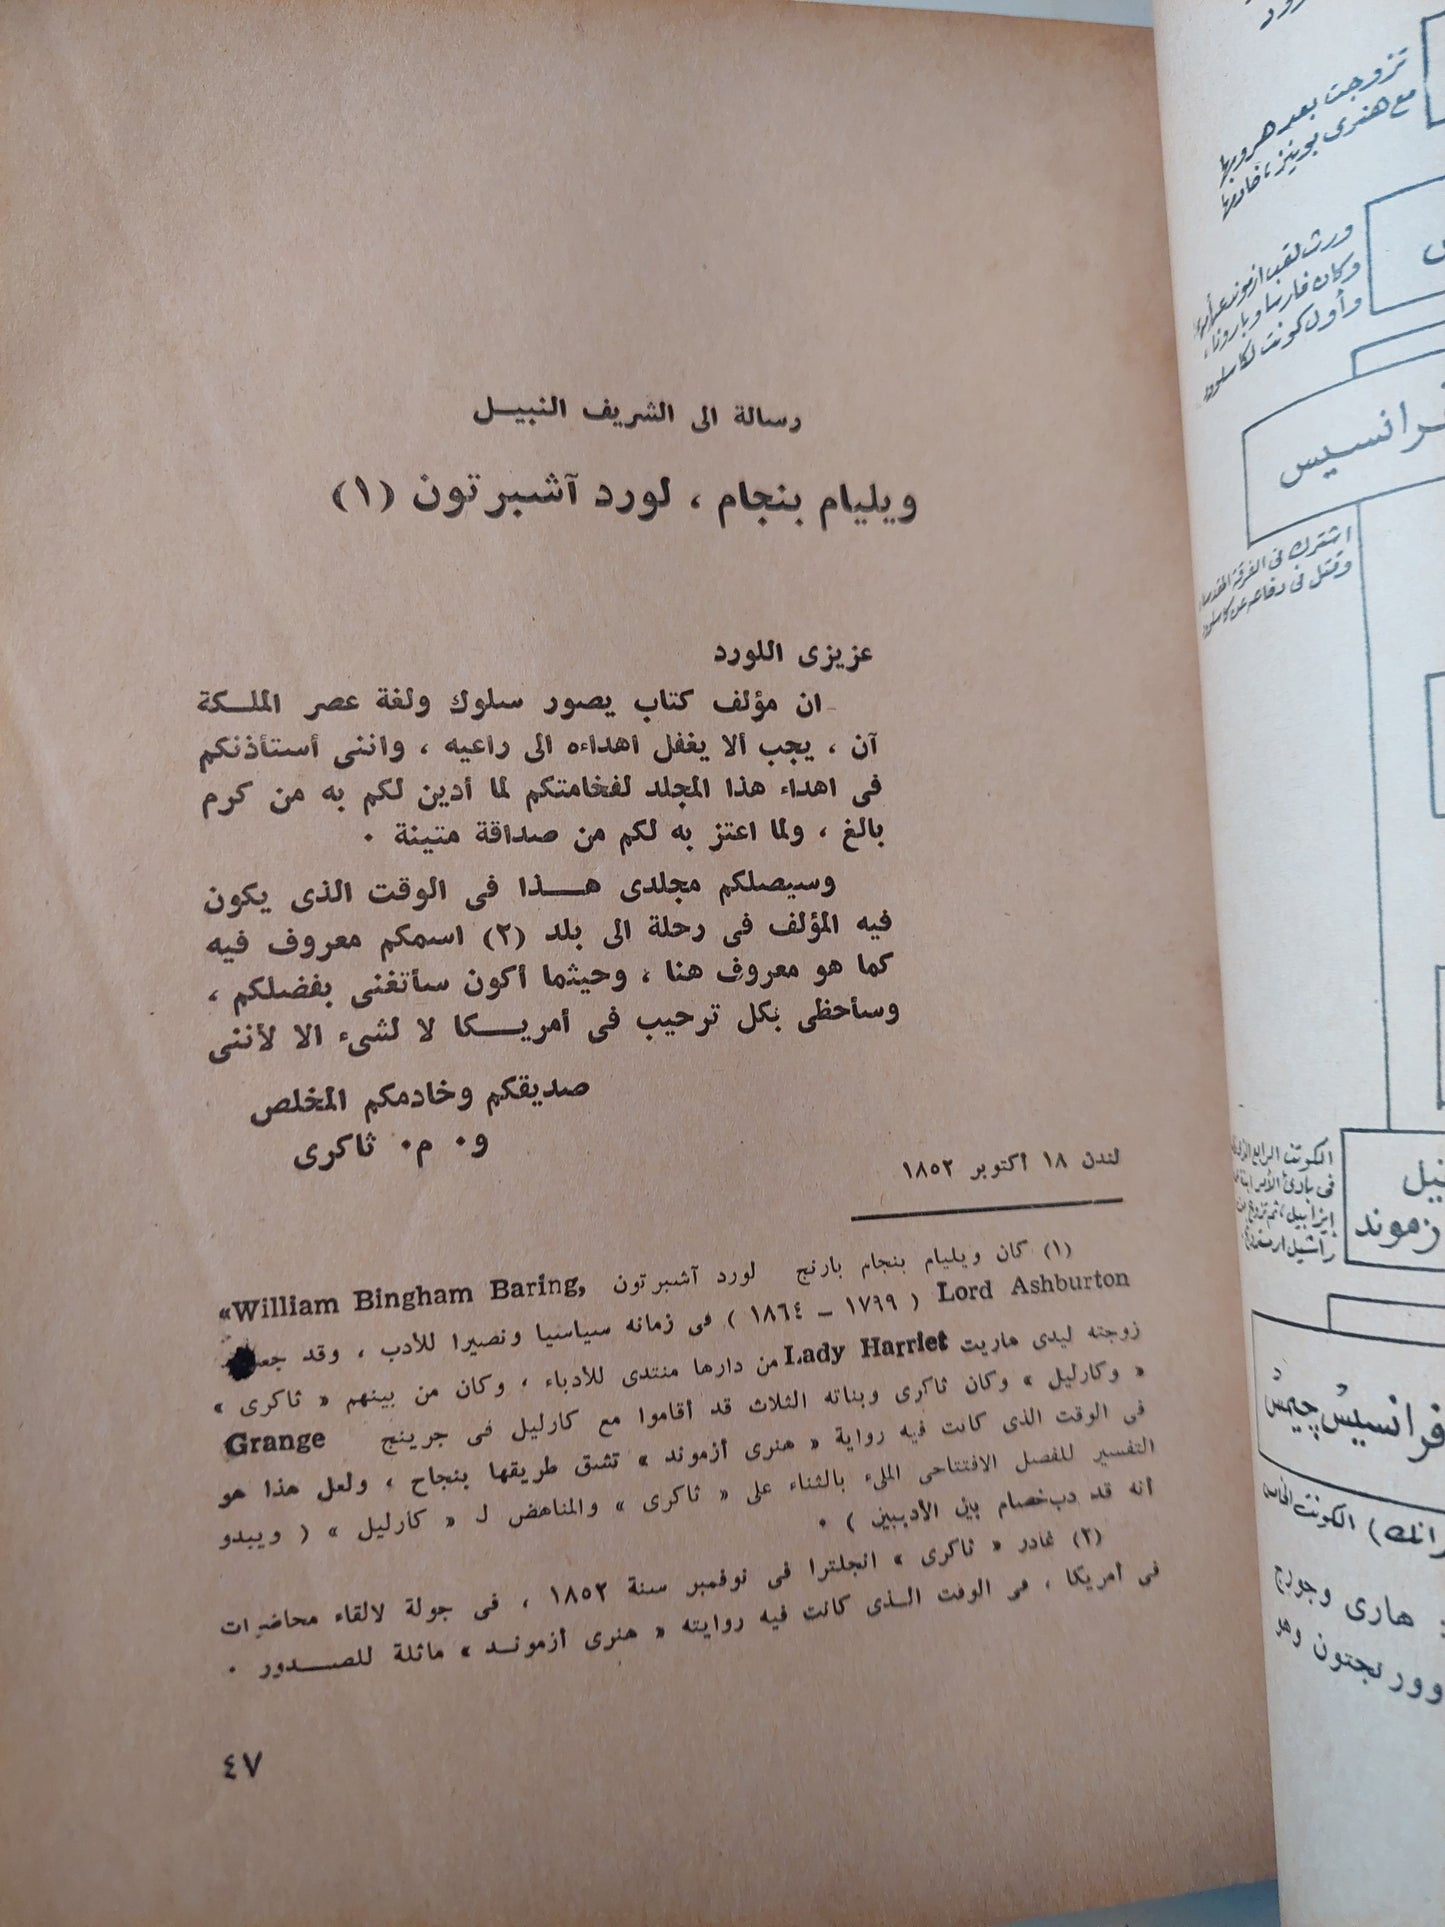 رسالة الى الشريف النبيـل
ويليام بنجام ، لورد آشبرتون (١)
عزيزى اللورد
ان مؤلف كتاب يصور سلوك ولغة عصر الملـكة
آن ، يجب ألا يغفل اهداءه الى راعيه ، واننى أستأذنكم
فى اهداء هذا المجلد لفخامتكم لما أدين لكم به من كرم
بالغ ، ولما اعتز به لكم من صداقة متينة ٠
وسيصلكم مجلدى هــذا فى الوقت الذى يكون
فيه المؤلف فى رحلة الى بلد (٢) اسمكم معروف فيه
كما هو معروف هنا ، وحيثما أكون سأتغنى بفضلكم ،
وسأحظى بكل ترحيب فى أمريـكا لا لشىء الا لأننى
صديقكم وخادمكم المخلص
و٠ م٠ ثاكرى
لندن ١٨ أكتوبر ١٨٥٢
(١) كان ويليام بنجام بارنج لورد آشبرتون «William Bingham Baring,
Lord Ashburton ( ١٧٩٩ – ١٨٦٤ ) فى زمانه سياسيا ونصيرا للأدب ، وقد
زوجته ليدى هاريت Lady Harriet من دارها منتدى للأدباء ، وكان من بينهم « ثاكرى »
« وكارليل » وكان ثاكرى وبناته الثلاث قد أقاموا مع كارليل فى جرينج Grange
فى الوقت الذى كانت فيه رواية « هنرى أزموند » تشق طريقها بنجاح ، ولعل هذا هو
التفسير للفصل الافتتاحى الملىء بالثناء على « ثاكرى » والمناهض لـ « كارليل » ( ويبدو
أنه قد دب خصام بين الأديبين ) ٠
(٢) غادر « ثاكرى » انجلترا فى نوفمبر سنة ١٨٥٢ ، فى جولة لالقاء محاضرات
فى أمريكا ، فى الوقت الـذى كانت فيه روايته « هنرى أزمونـد » ماثلة للصـدور ٠
٤٧
تزوجت بعد هروبها
مع هنرى بوينز، خادمها
ورث لقب ازموند عن أبيه
وكان فارسا وبارونا،
وأول كونت لكاسلوود
فرانسيس
اشترك فى الفرقة
وقتل فى دفاعه عن كاسلوود
الكونت الرابع
إيزابيل، ثم تزوج من
فرانسيس جيمس
الكونت الخامس
هارى وجورج
وورنجتون وهو